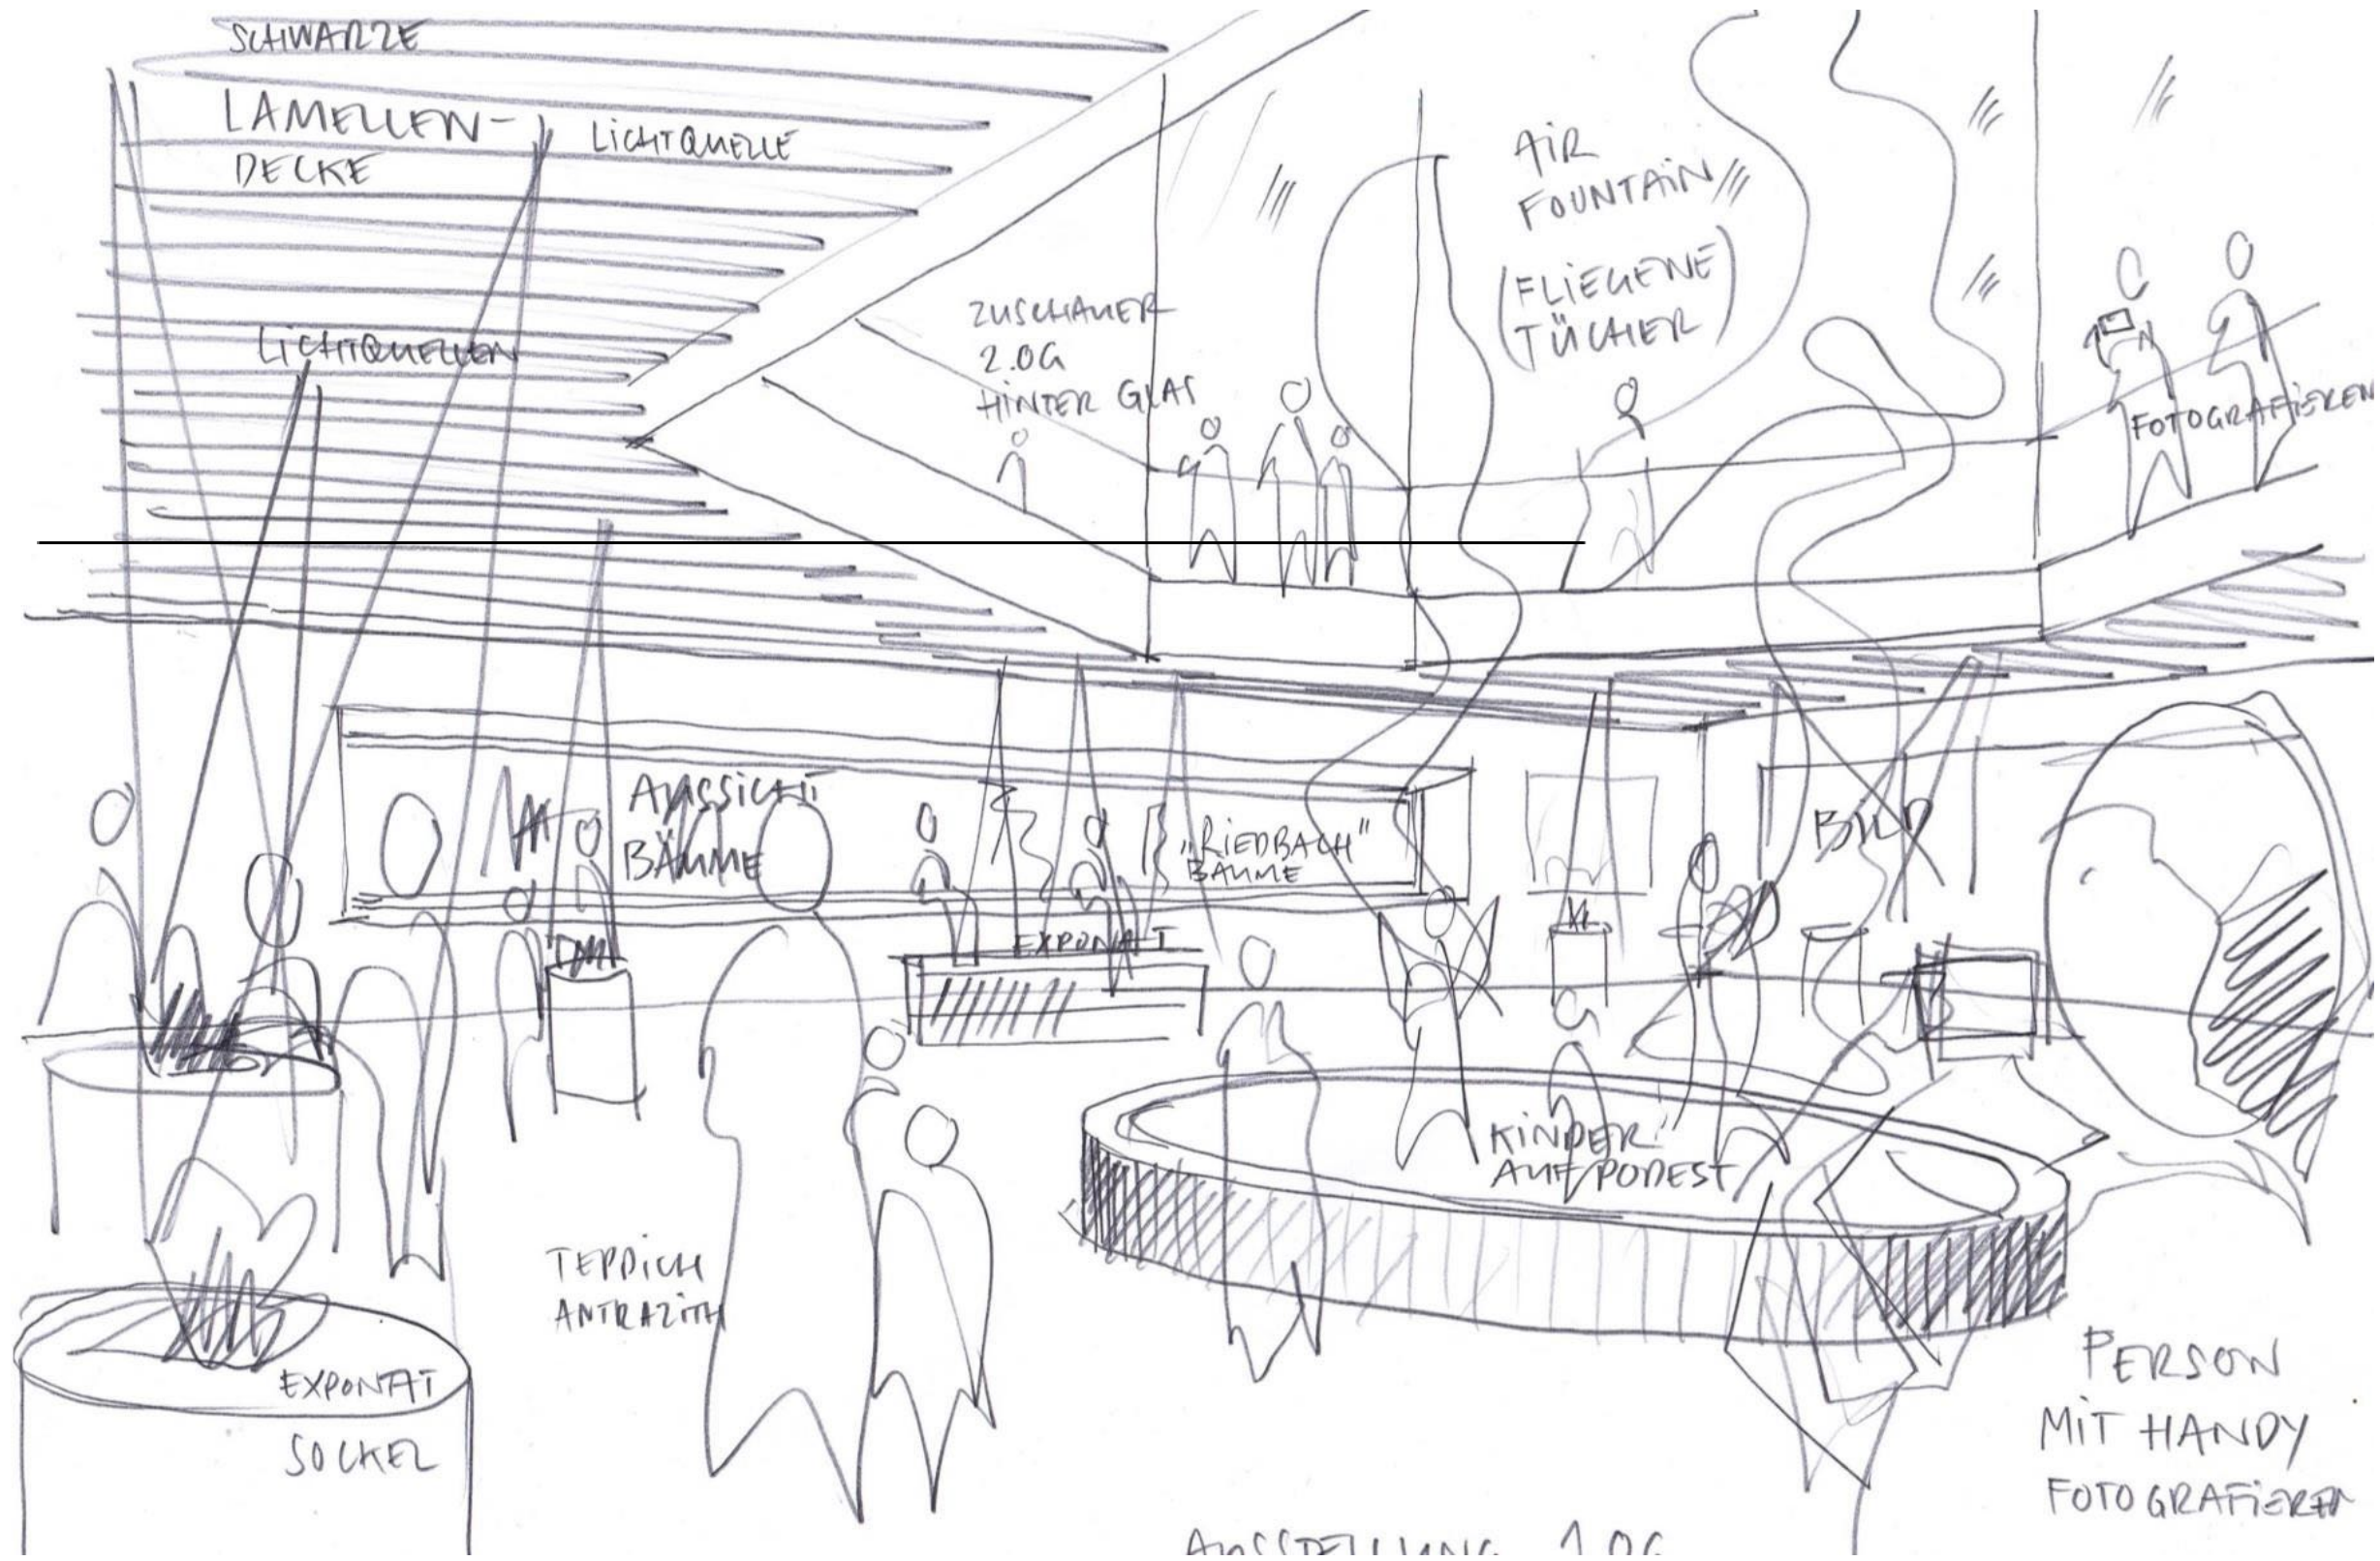 SCHWARZE
LAMELLEN-
DECKE
LICHTQUELLE
LICHTQUELLEN
AIR
FOUNTAIN
(FLIEGENE
TÜCHER)
ZUSCHAUER
2.OG
HINTER GLAS
FOTOGRAFIEREN
AUSSICHT
BÄUME
"RIEDBACH"
BÄUME
BILD
EXPONAT
KINDER
AUF PODEST
TEPPICH
ANTRAZITH
EXPONAT
SOCKEL
PERSON
MIT HANDY
FOTOGRAFIEREN
AUSSTELLUNG 1.OG